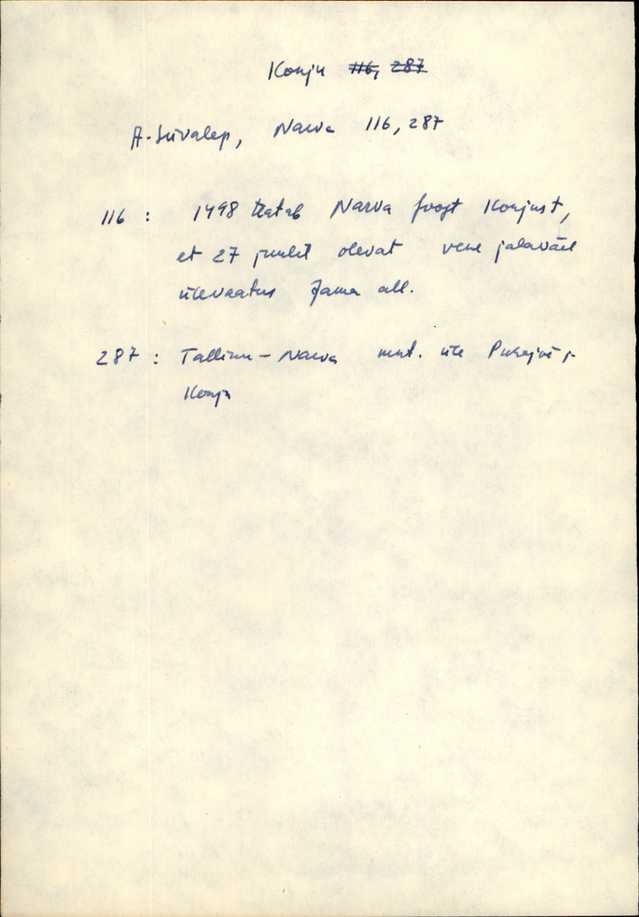 Konju 116, 287
A. Süvalep, Narva 116, 287
116 : 1498 teatab Narva foogt Konjust,
et 27 juulil olevat vene jalaväel
ülevaatus Jama all.
287 : Tallinn-Narva mnt. üle Purtse
Konju